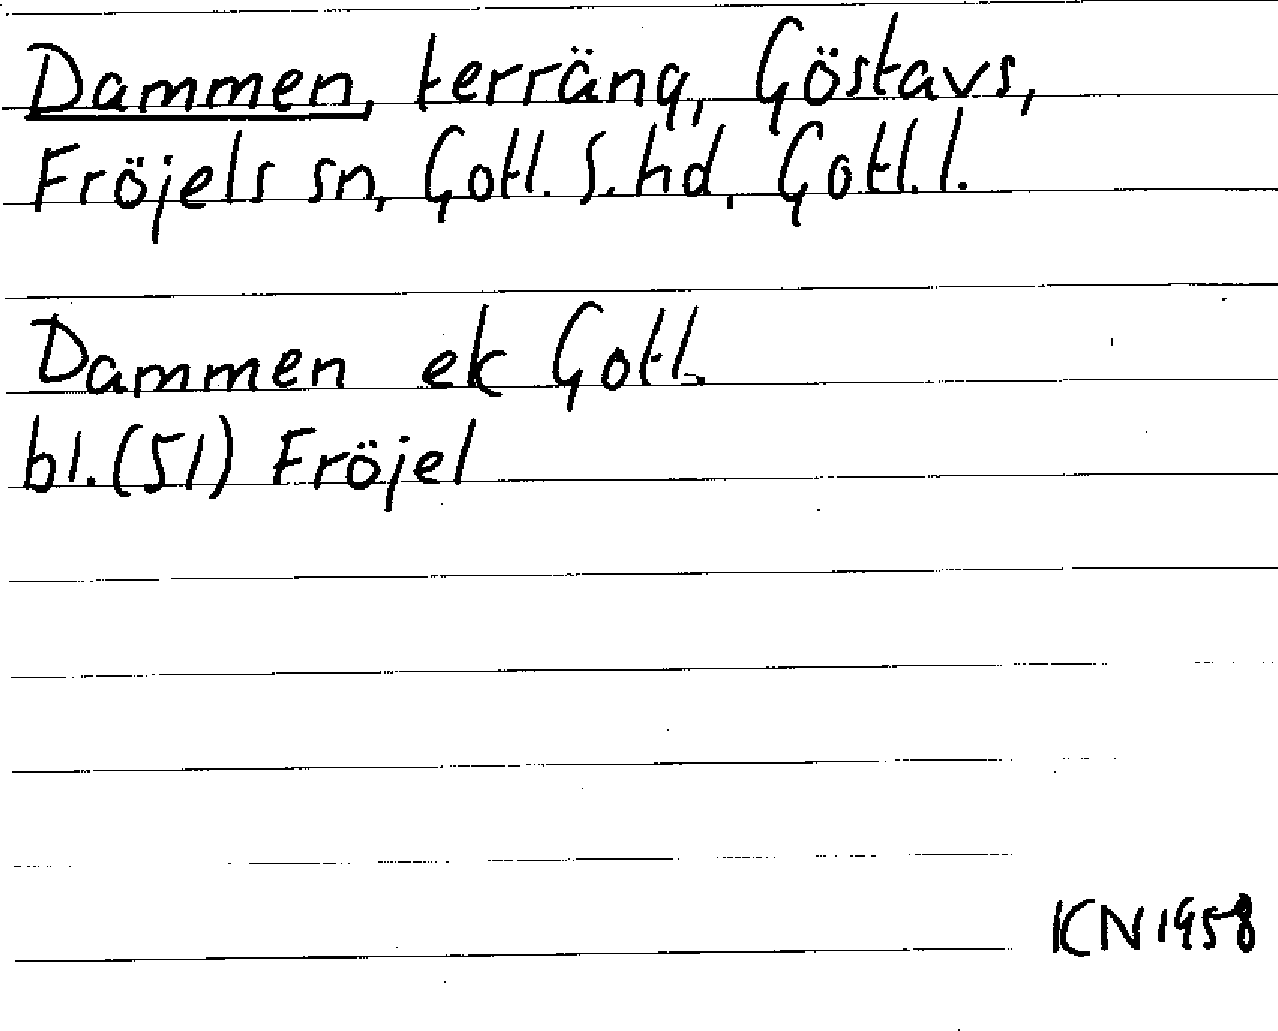 Dammen, terräng, Göstavs,
Fröjels sn, Gotl. S. hd, Gotl. l.
Dammen ek Gotl.
bl. (51) Fröjel
KN 1958